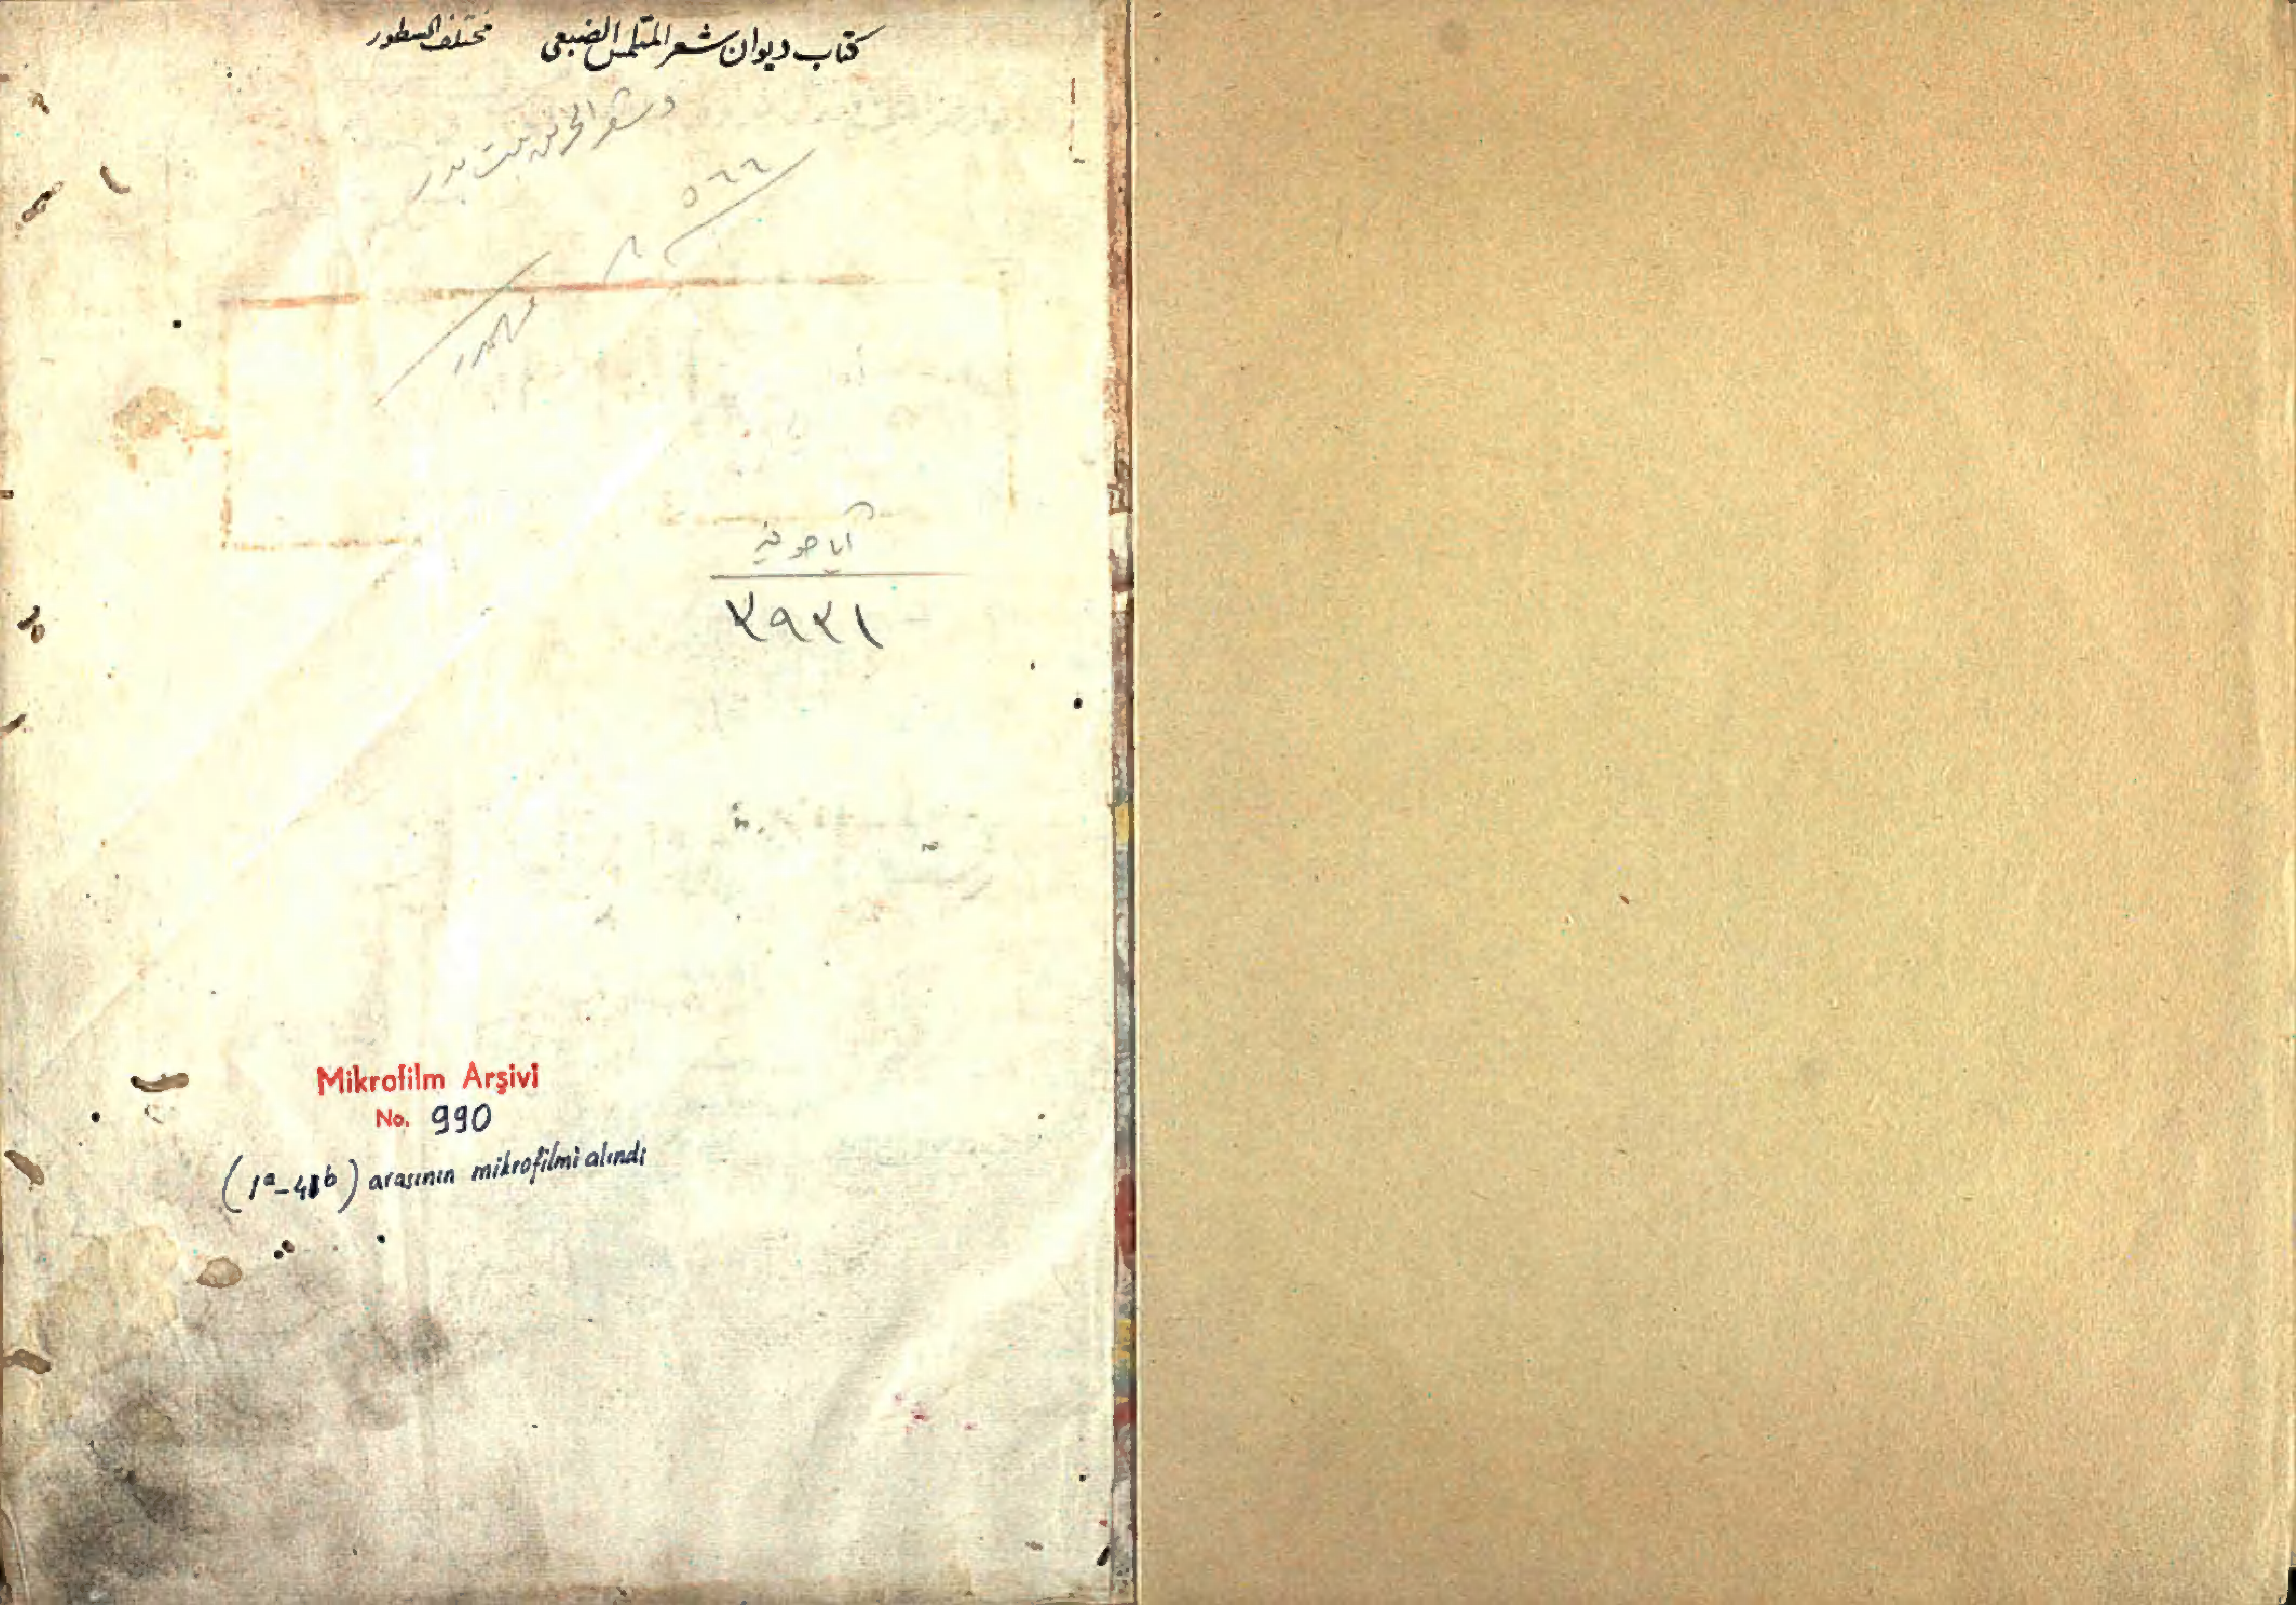 كتاب ديوان شعر المتلمس الضبعي مختلف السطور
و شعر الخرنق بنت بدر
٥٦٦
٨
آيا صوفيه
٣٩٣١
Mikrofilm Arşivi
No. 990
(1a-41b) arasının mikrofilmi alındı